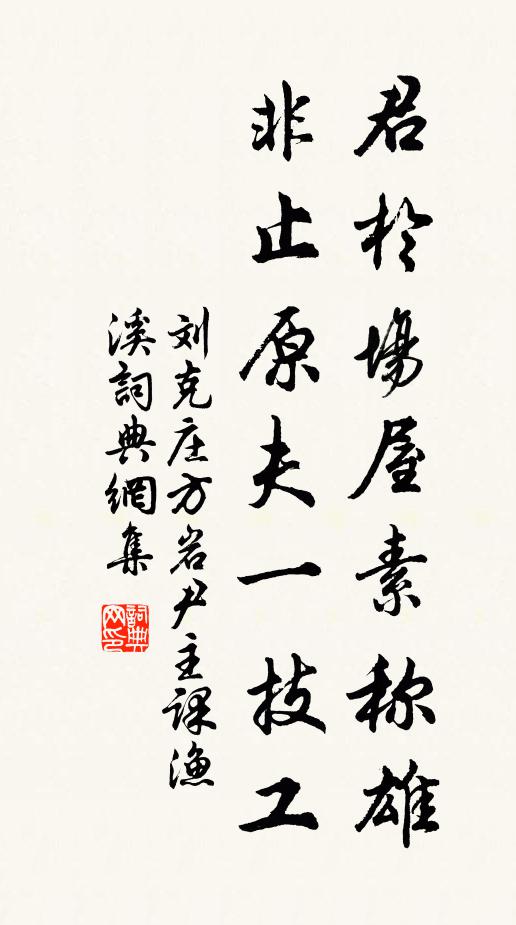 君於場屋素称雄
非止原夫一技工
刘克庄方岩尹主课渔
溪詞典網集
詞典网印